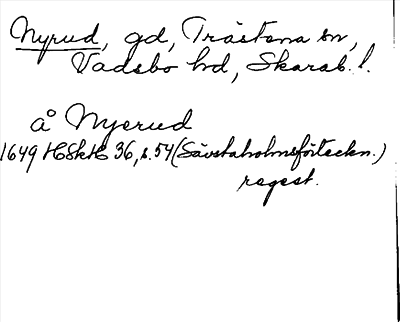 Nyrud, gd, Trästena sn,
Vadsbo hd, Skarab. l.
å Nyerud
1649 HSkH 36, s. 54 (Sävstaholmsförteckn.)
regest.